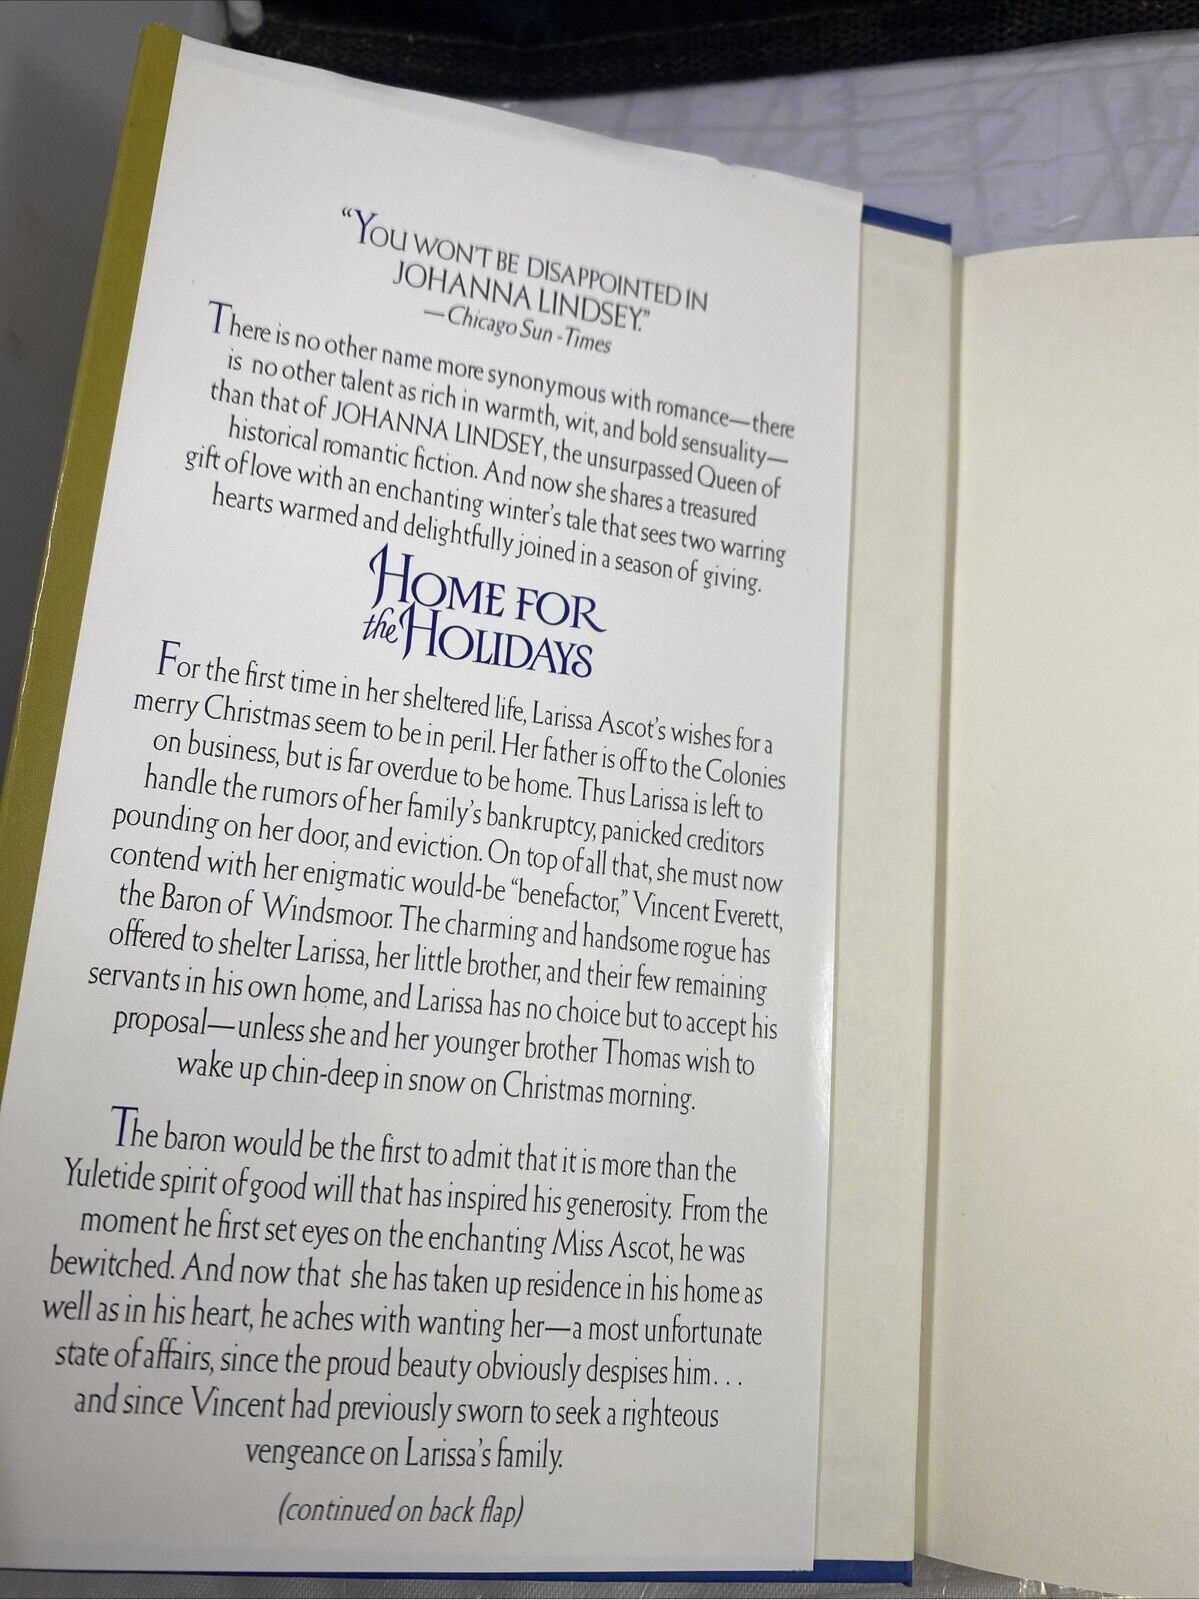 “YOU WON'T BE DISAPPOINTED IN
JOHANNA LINDSEY.”
—Chicago Sun-Times
There is no other name more synonymous with romance—there
is no other talent as rich in warmth, wit, and bold sensuality—
than that of JOHANNA LINDSEY, the unsurpassed Queen of
historical romantic fiction. And now she shares a treasured
gift of love with an enchanting winter's tale that sees two warring
hearts warmed and delightfully joined in a season of giving.
HOME FOR
the HOLIDAYS
For the first time in her sheltered life, Larissa Ascot's wishes for a
merry Christmas seem to be in peril. Her father is off to the Colonies
on business, but is far overdue to be home. Thus Larissa is left to
handle the rumors of her family's bankruptcy, panicked creditors
pounding on her door, and eviction. On top of all that, she must now
contend with her enigmatic would-be “benefactor,” Vincent Everett,
the Baron of Windsmoor. The charming and handsome rogue has
offered to shelter Larissa, her little brother, and their few remaining
servants in his own home, and Larissa has no choice but to accept his
proposal—unless she and her younger brother Thomas wish to
wake up chin-deep in snow on Christmas morning.
The baron would be the first to admit that it is more than the
Yuletide spirit of good will that has inspired his generosity. From the
moment he first set eyes on the enchanting Miss Ascot, he was
bewitched. And now that she has taken up residence in his home as
well as in his heart, he aches with wanting her—a most unfortunate
state of affairs, since the proud beauty obviously despises him...
and since Vincent had previously sworn to seek a righteous
vengeance on Larissa's family.
(continued on back flap)